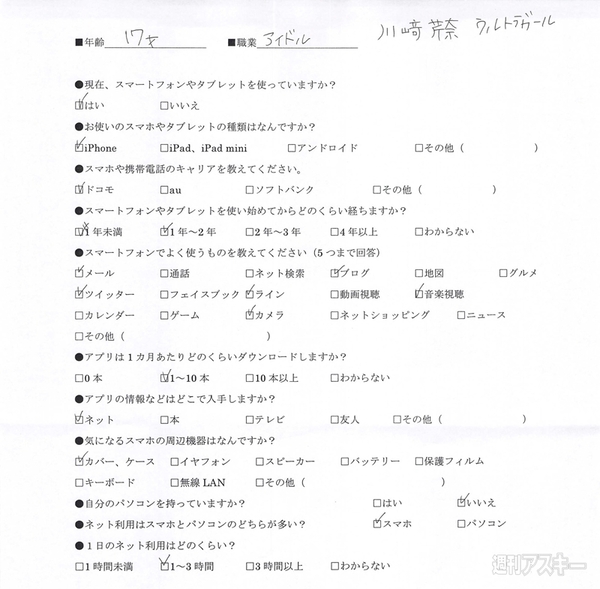 ■年齢 17才 ■職業 アイドル 川﨑芽奈 ウルトラガール
●現在、スマートフォンやタブレットを使っていますか？
☑はい □いいえ
●お使いのスマホやタブレットの種類はなんですか？
☑iPhone □iPad、iPad mini □アンドロイド □その他（ ）
●スマホや携帯電話のキャリアを教えてください。
☑ドコモ □au □ソフトバンク □その他（ ）
●スマートフォンやタブレットを使い始めてからどのくらい経ちますか？
☒1年未満 ☑1年～2年 □2年～3年 □4年以上 □わからない
●スマートフォンでよく使うものを教えてください（5つまで回答）
☑メール □通話 □ネット検索 ☑ブログ □地図 □グルメ
☑ツイッター □フェイスブック ☑ライン □動画視聴 ☑音楽視聴
□カレンダー □ゲーム ☑カメラ □ネットショッピング □ニュース
□その他（ ）
●アプリは1カ月あたりどのくらいダウンロードしますか？
□0本 ☑1～10本 □10本以上 □わからない
●アプリの情報などはどこで入手しますか？
☑ネット □本 □テレビ □友人 □その他（ ）
●気になるスマホの周辺機器はなんですか？
☑カバー、ケース □イヤフォン □スピーカー □バッテリー □保護フィルム
□キーボード □無線LAN □その他（ ）
●自分のパソコンを持っていますか？ □はい ☑いいえ
●ネット利用はスマホとパソコンのどちらが多い？ ☑スマホ □パソコン
●1日のネット利用はどのくらい？
□1時間未満 ☑1～3時間 □3時間以上 □わからない
週刊アスキー